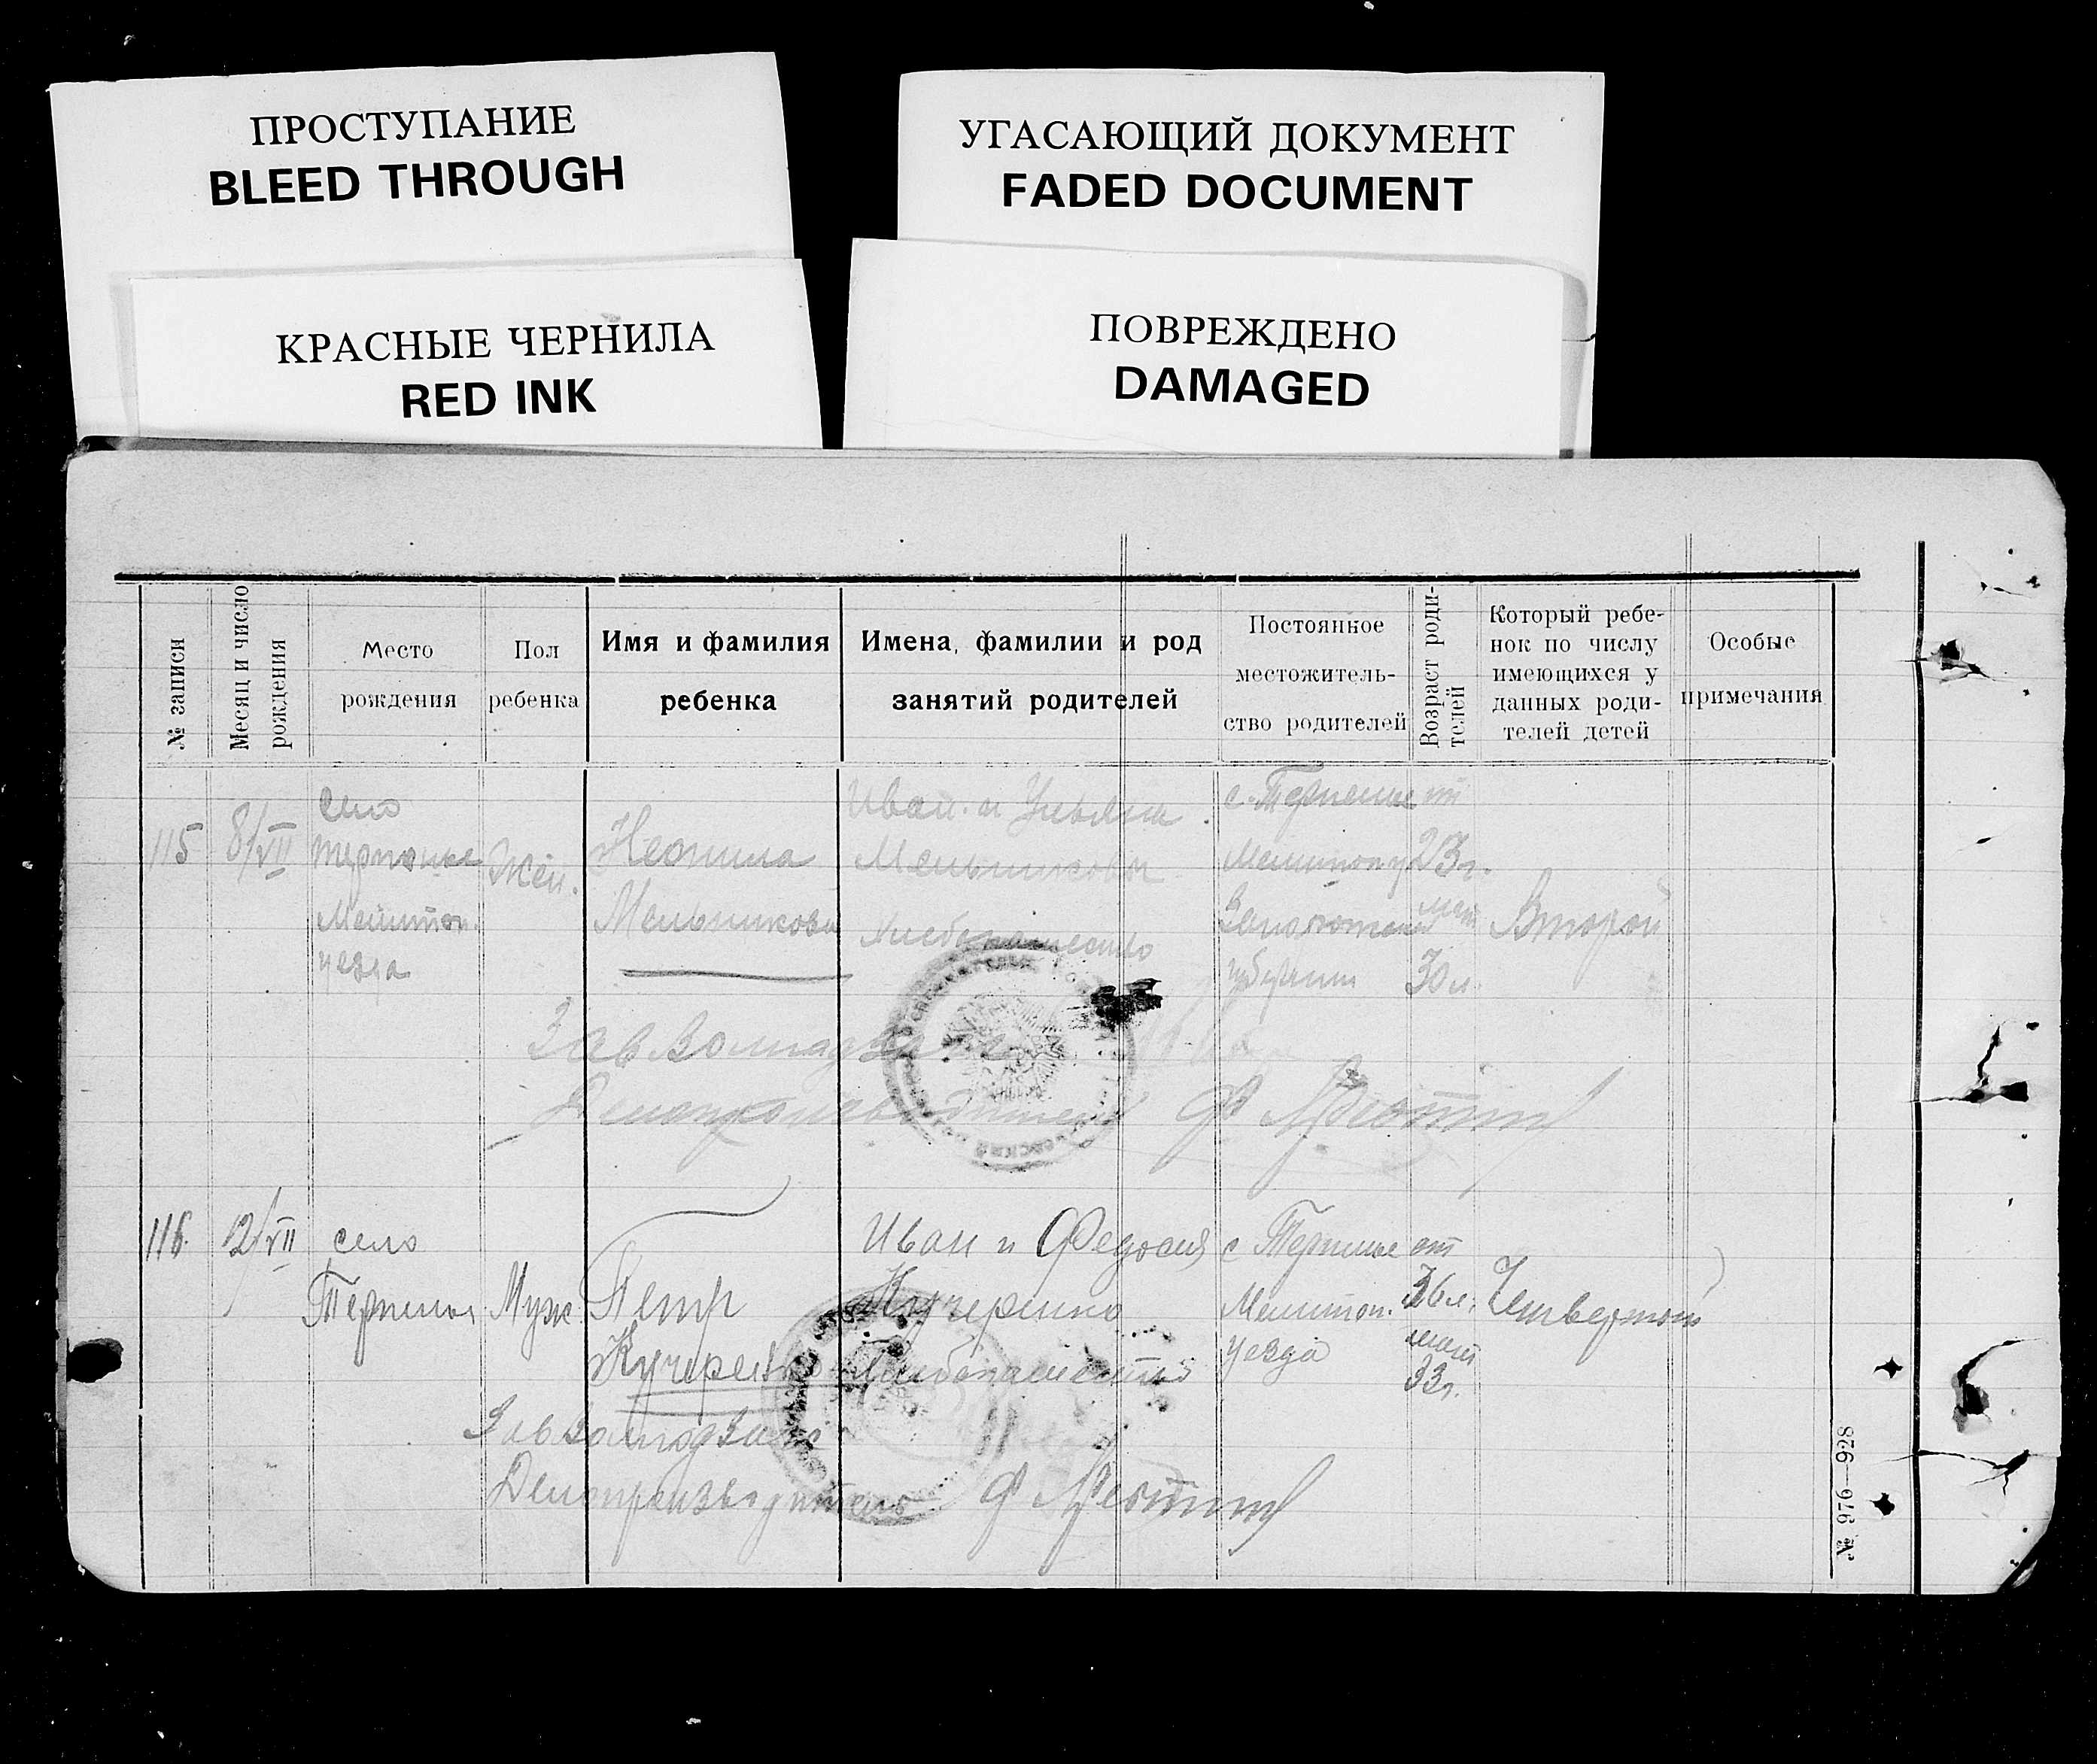 ПРОСТУПАНИЕ
BLEED THROUGH
УГАСАЮЩИЙ ДОКУМЕНТ
FADED DOCUMENT
КРАСНЫЕ ЧЕРНИЛА
RED INK
ПОВРЕЖДЕНО
DAMAGED
№ записи
Месяц и число
рождения
Место
рождения
Пол
ребенка
Имя и фамилия
ребенка
Имена, фамилии и род
занятий родителей
Постоянное
местожитель-
ство родителей
Возраст роди-
телей
Который ребе-
нок по числу
имеющихся у
данных роди-
телей детей
Особые
примечания
115
8/VII
село
Мелитоп.
уезда
Жен.
Мельникова
Иван и Ульяна
Мельниковы
Хлебопашество
с.
Мелитоп. у
губернии
от
23 г.
мат
30 л.
Второй
Делопроизводитель Ф
116.
12/VII
село
Терпенье
Муж
Петр
Кучеренко
Иван и Федосия
Кучеренко
Хлебопашество
с Терпенье
Мелитоп.
уезда
от
36 л.
мат
33 г.
Четвертый
Делопроизводитель Ф
№ 976—928